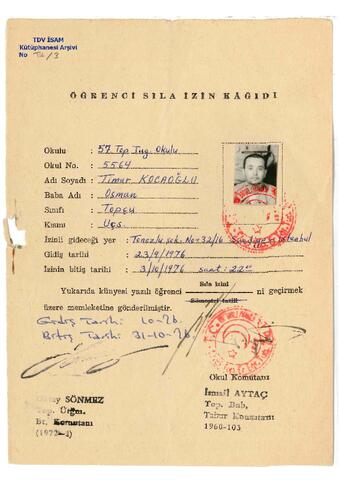 TDV İSAM
Kütüphanesi Arşivi
No TK/3
ÖĞRENCİ SILA İZİN KAĞIDI
Okulu : 57. Top. Tug. Okulu
Okul No. : 5564
Adı Soyadı : Timur KOCAOĞLU
Baba Adı : Osman
Sınıfı : Topçu
Kısmı : Uçs
İzinli gideceği yer : sok. No=32/16 İstanbul
Gidiş tarihi : 23/9/1976
İzinin bitiş tarihi : 3/10/1976 saat: 22⁰⁰
Yukarıda künyesi yazılı öğrenci Sıla izini ni geçirmek
Sömestri tatili
üzere memleketine gönderilmiştir.
Gidiş Tarihi: 10-76.
Bitiş Tarihi: 31-10-76.
Okul Komutanı
SÖNMEZ
Top. Ütğm.
Bt. Komutanı
İsmail AYTAÇ
Top. Bnb.
Tabur Komutanı
1960-103